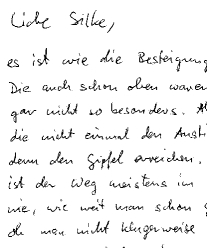 Liebe Silke,
es ist wie die Besteigung
Die auch schon oben waren
gar nicht so besonders. A
die nicht einmal den Ansti
denn den Gipfel erreichen.
ist der Weg meistens im
nie, wie weit man schon g
ob man nicht klugerweise